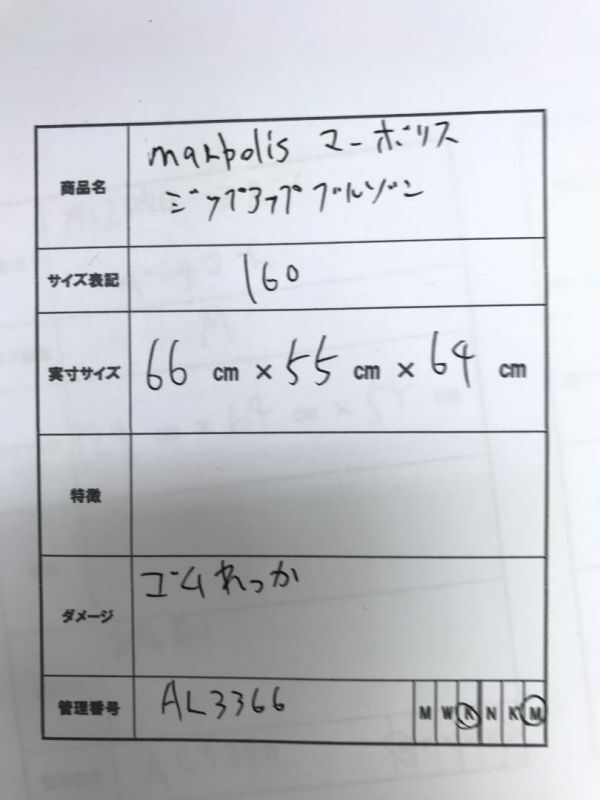 商品名 markpolis マーボリス
ジップアップブルゾン
サイズ表記 160
実寸サイズ 66 cm × 55 cm × 64 cm
特徴
ダメージ ゴムれっか
管理番号 AL3366 M W K N K M